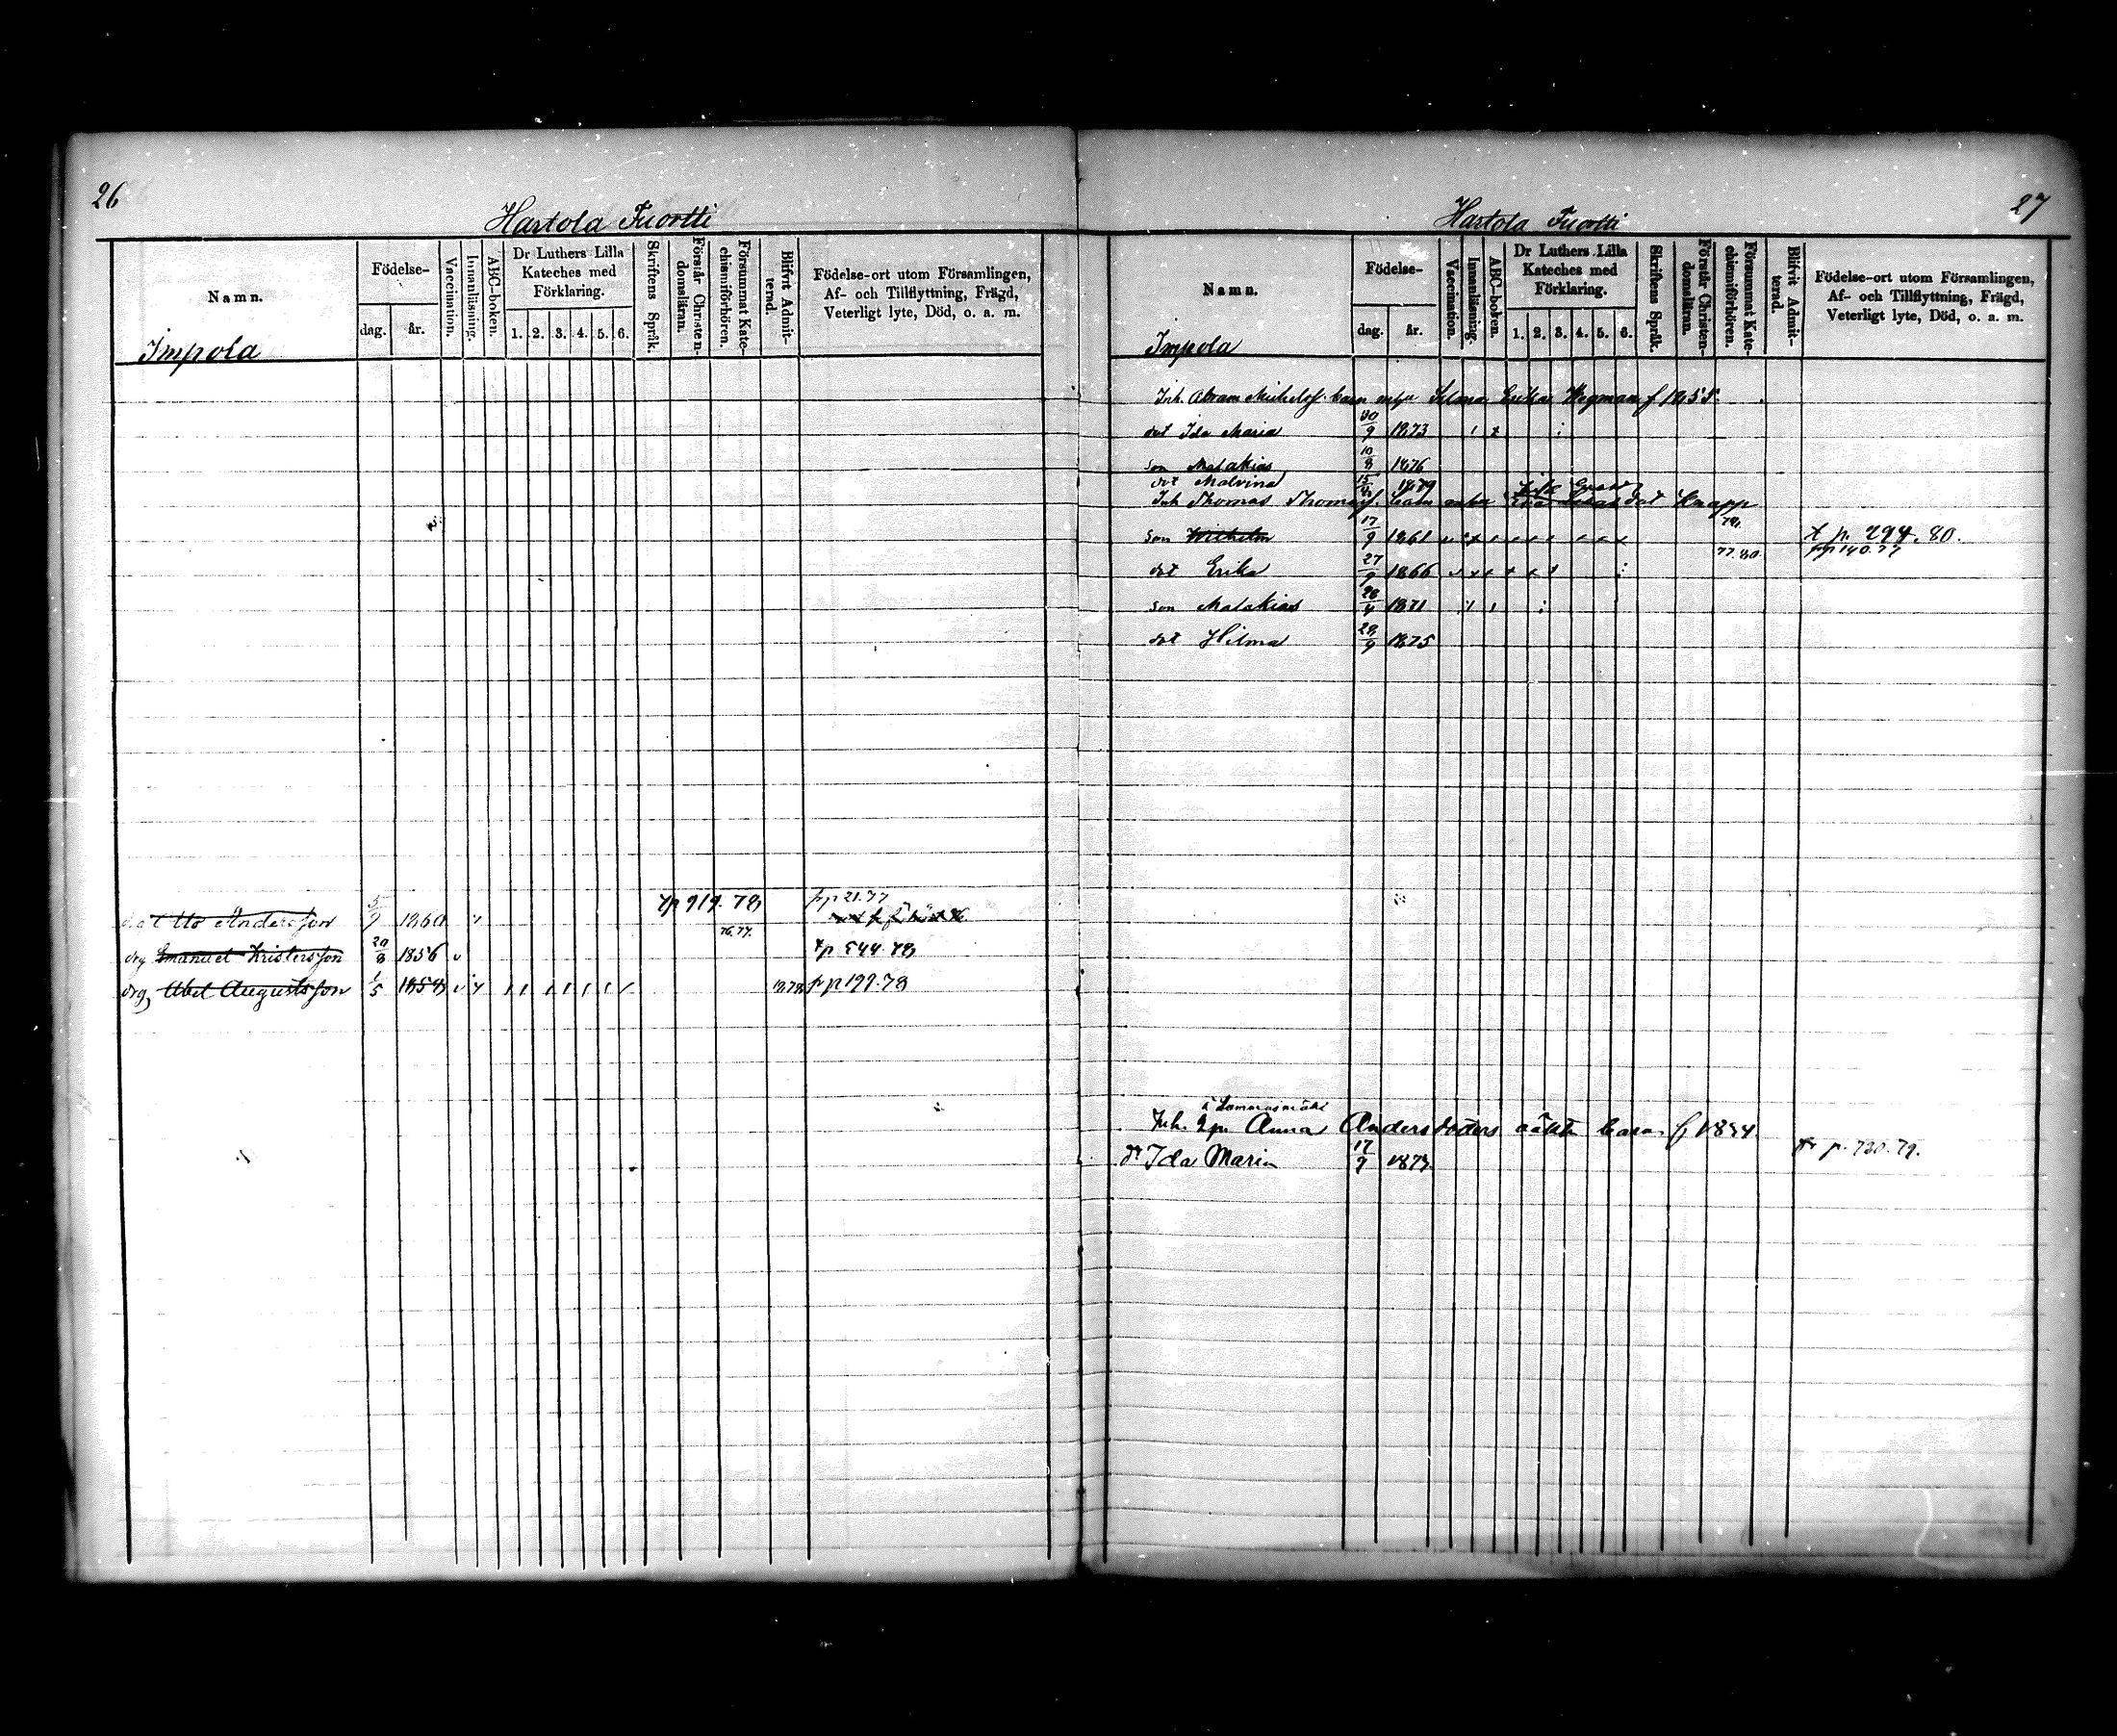 26
Hartola Tuortti
Namn.
Födelse-
dag.
år.
Vaccination.
Innanläsning.
ABC-boken.
Dr Luthers Lilla
Kateches med
Förklaring.
1. 2. 3. 4. 5. 6.
Skriftens Språk.
Förstår Christen-
domsläran.
Försummat Kate-
chismiförhören.
Blifvit Admit-
terad.
Födelse-ort utom Församlingen,
Af- och Tillflyttning, Frägd,
Veterligt lyte, Död, o. a. m.
Impola
Otto Andersson 5/9 1860 919. 78 21. 77
76. 77.
drg Emanuel Kristersson 20/8 1856 544. 78
drg Abel Augustsson 1/5 1858 1878 199. 78
27
Hartola Tuortti
Namn.
Födelse-
dag.
år.
Vaccination.
Innanläsning.
ABC-boken.
Dr Luthers Lilla
Kateches med
Förklaring.
1. 2. 3. 4. 5. 6.
Skriftens Språk.
Förstår Christen-
domsläran.
Försummat Kate-
chismiförhören.
Blifvit Admit-
terad.
Födelse-ort utom Församlingen,
Af- och Tillflyttning, Frägd,
Veterligt lyte, Död, o. a. m.
Impola
Inh. Abram Michelss. barn enka Selma Erika Hegman f 1855
dot Ida Maria 30/9 1873
son Malakias 10/8 1876
dot Malvina 1879
Inh Thomas Thomass. barn enka dot Knapp
son Wilhelm 17/9 1861 p. 294. 80.
77. 80. 140. 77
dot Erika 27/9 1866
son Malakias 28/4 1871
dot Hilma 28/9 1875
Inh. Anna Andersdoters barn f 1854
dr Ida Maria 17/9 p. 730. 79.